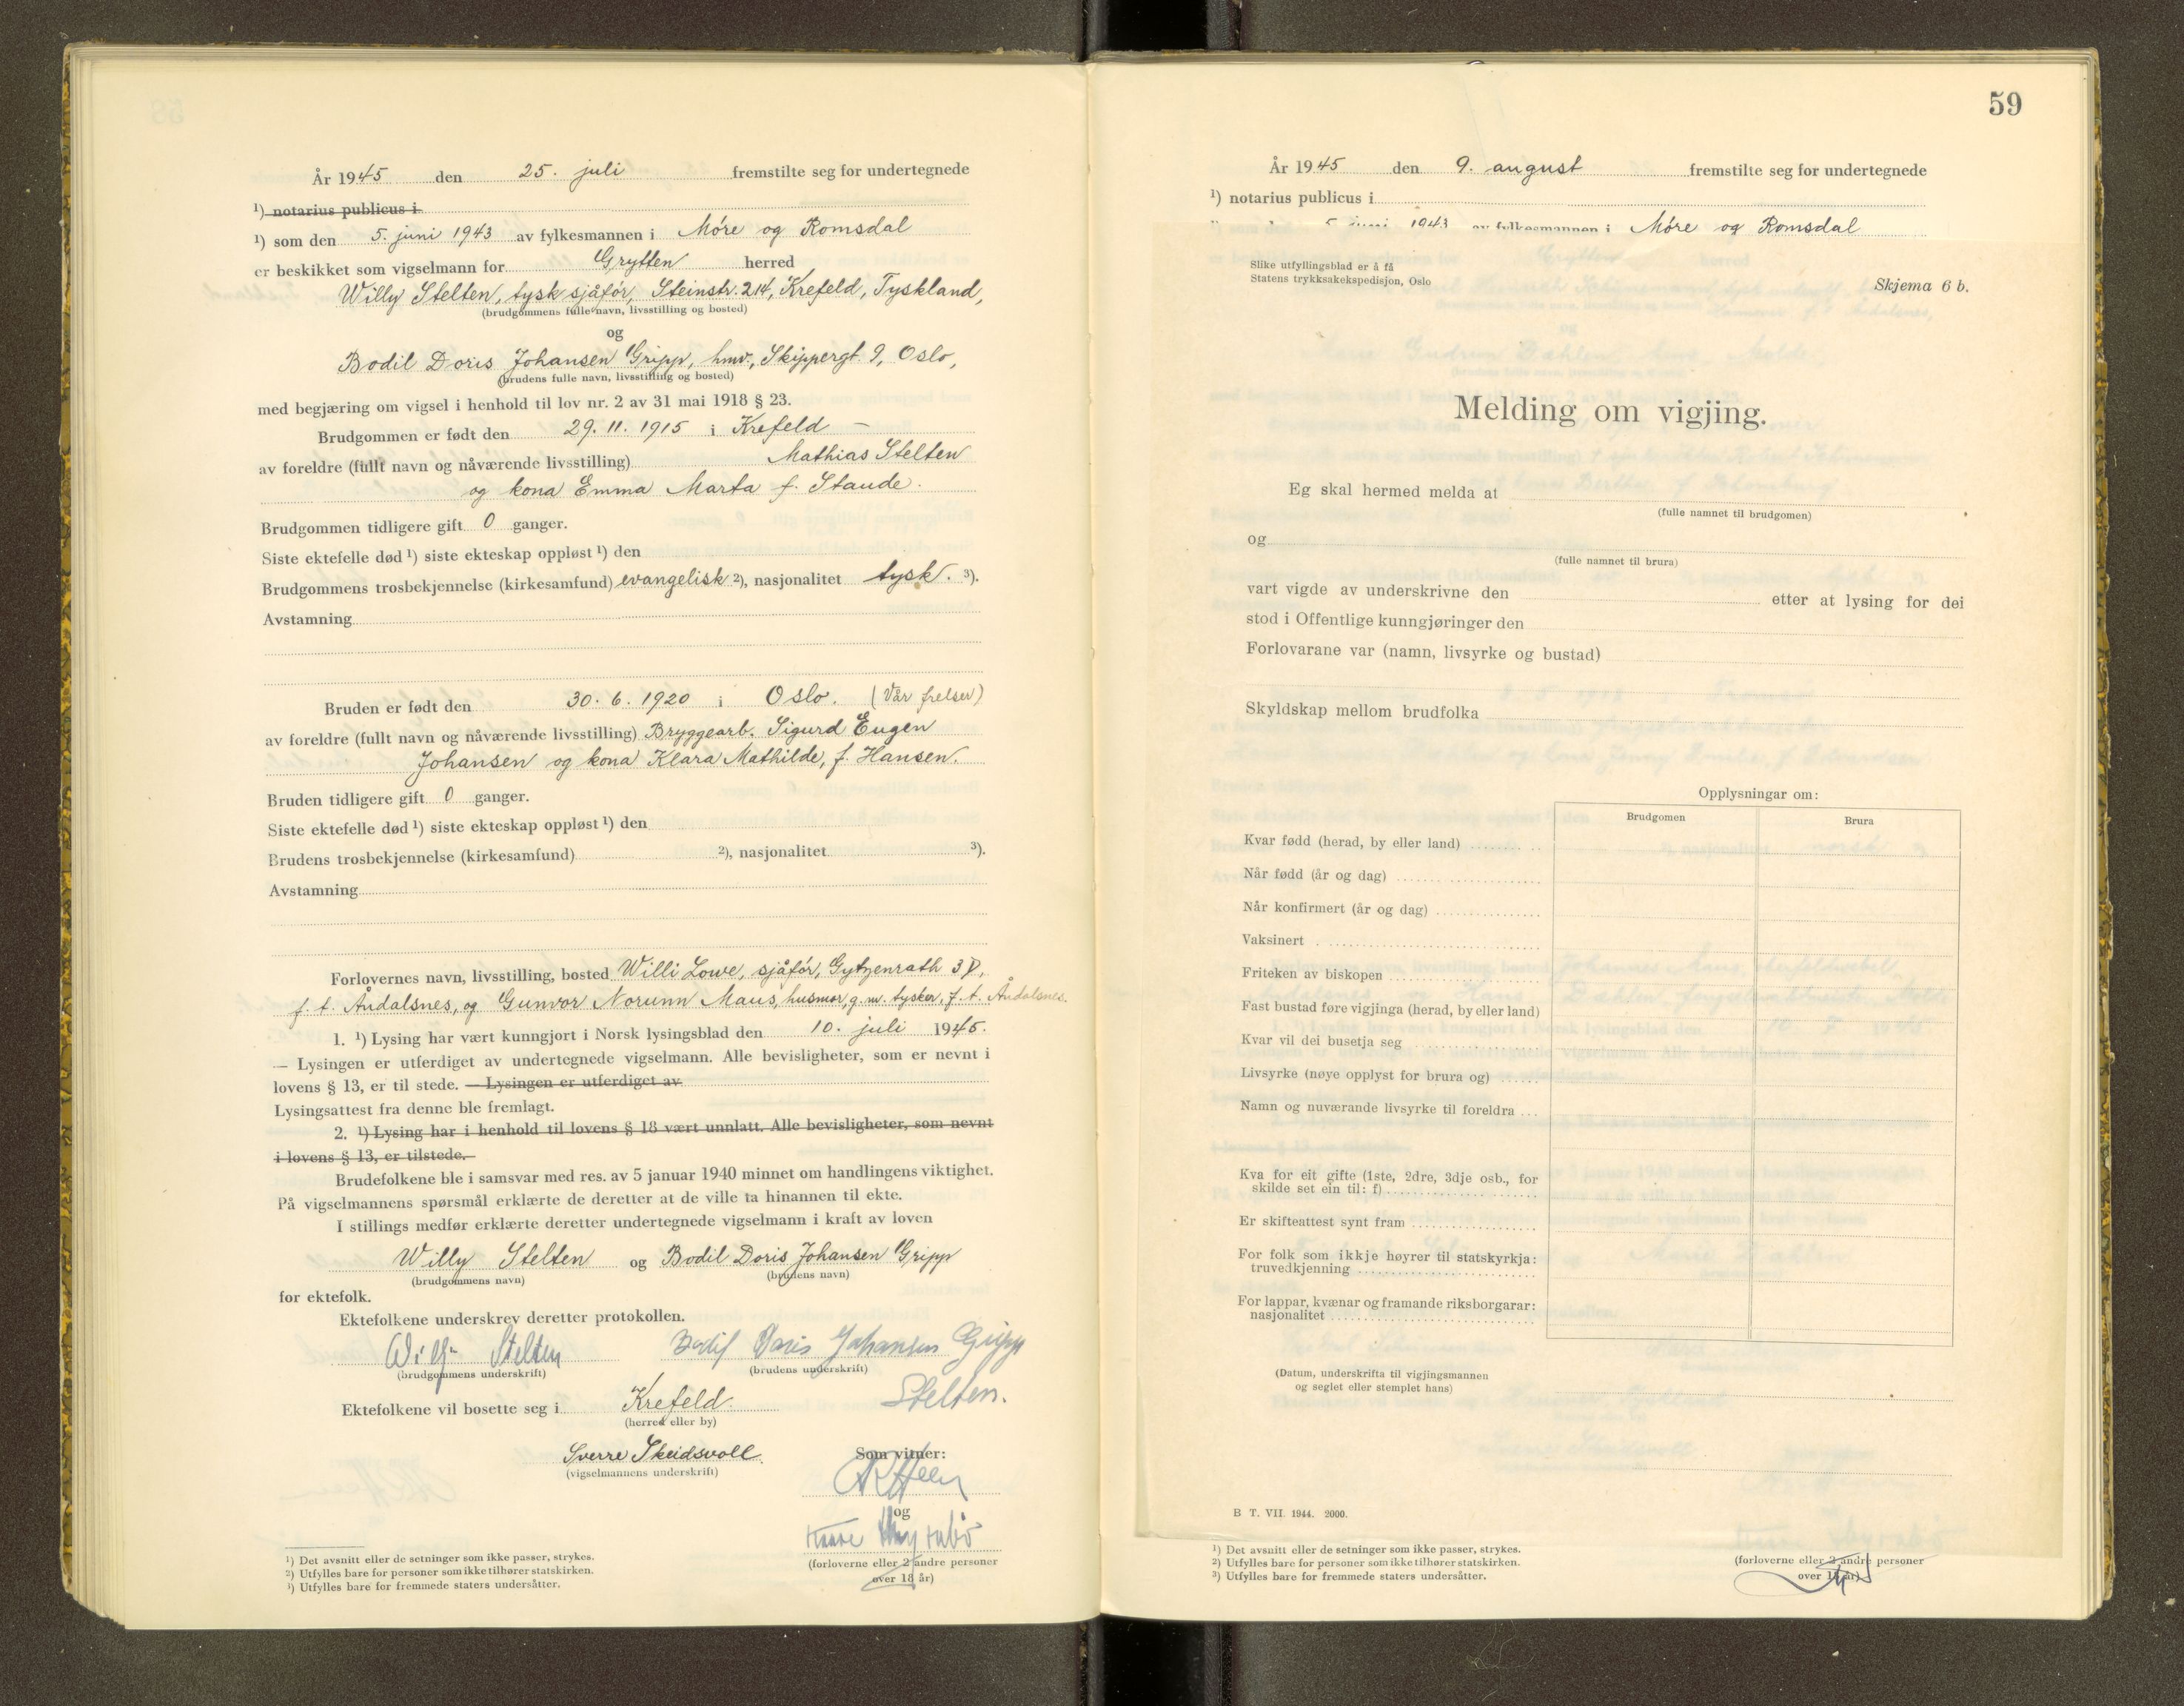 År 1945 den 25. juli fremstilte seg for undertegnede
¹) notarius publicus i
¹) som den 5. juni 1943 av fylkesmannen i Møre og Romsdal
er beskikket som vigselmann for Grytten herred
Willy Stelten, tysk sjåfór, Steinstr. 214, Krefeld, Tyskland,
(brudgommens fulle navn, livsstilling og bosted)
og
Bodil Doris Johansen Gripp, hmv., Skippergt. 9, Oslo,
(brudens fulle navn, livsstilling og bosted)
med begjæring om vigsel i henhold til lov nr. 2 av 31 mai 1918 § 23.
Brudgommen er født den 29. 11. 1915 i Krefeld –
av foreldre (fullt navn og nåværende livsstilling) Mathias Stelten
og kona Emma Marta f. Staude.
Brudgommen tidligere gift 0 ganger.
Siste ektefelle død ¹) siste ekteskap oppløst ¹) den
Brudgommens trosbekjennelse (kirkesamfund) evangelisk ²), nasjonalitet tysk. ³).
Avstamning
Bruden er født den 30. 6. 1920 i Oslo. (Vår frelser)
av foreldre (fullt navn og nåværende livsstilling) Bryggearb. Sigurd Eugen
Johansen og kona Klara Mathilde, f. Hansen.
Bruden tidligere gift 0 ganger.
Siste ektefelle død ¹) siste ekteskap oppløst ¹) den
Brudens trosbekjennelse (kirkesamfund) ²), nasjonalitet ³).
Avstamning
Forlovernes navn, livsstilling, bosted Willi Lowe, sjåfór, Gytzenrath 3
f. t. Åndalsnes, og Gunvor Norunn Maus, husmor, g. m. tysker, f. t. Åndalsnes.
1. ¹) Lysing har vært kunngjort i Norsk lysingsblad den 10. juli 1945.
— Lysingen er utferdiget av undertegnede vigselmann. Alle bevisligheter, som er nevnt i
lovens § 13, er til stede. — Lysingen er utferdiget av
Lysingsattest fra denne ble fremlagt.
2. ¹) Lysing har i henhold til lovens § 18 vært unnlatt. Alle bevisligheter, som nevnt
i lovens § 13, er tilstede.
Brudefolkene ble i samsvar med res. av 5 januar 1940 minnet om handlingens viktighet.
På vigselmannens spørsmål erklærte de deretter at de ville ta hinannen til ekte.
I stillings medfør erklærte deretter undertegnede vigselmann i kraft av loven
Willy Stelten og Bodil Doris Johansen Gripp
(brudgommens navn) (brudens navn)
for ektefolk.
Ektefolkene underskrev deretter protokollen.
Willy Stelten Bodil Doris Johansen Gripp
(brudgommens underskrift) (brudens underskrift)
Stelten.
Ektefolkene vil bosette seg i Krefeld.
(herred eller by)
Sverre Skeidsvoll
(vigselmannens underskrift)
Som vitner:
og
(forloverne eller 2 andre personer
over 18 år)
¹) Det avsnitt eller de setninger som ikke passer, strykes.
²) Utfylles bare for personer som ikke tilhører statskirken.
³) Utfylles bare for fremmede staters undersåtter.
59
År 1945 den 9. august fremstilte seg for undertegnede
¹) notarius publicus i
5. juni 1943 av fylkesmannen i Møre og Romsdal
Slike utfyllingsblad er å få
Statens trykksakekspedisjon, Oslo
Skjema 6 b.
Melding om vigjing.
Eg skal hermed melda at
(fulle namnet til brudgomen)
og
(fulle namnet til brura)
vart vigde av underskrivne den etter at lysing for dei
stod i Offentlige kunngjøringer den
Forlovarane var (namn, livsyrke og bustad)
Skyldskap mellom brudfolka
Opplysningar om:
Brudgomen Brura
Kvar fødd (herad, by eller land)
Når fødd (år og dag)
Når konfirmert (år og dag)
Vaksinert
Friteken av biskopen
Fast bustad føre vigjinga (herad, by eller land)
Kvar vil dei busetja seg
Livsyrke (nøye opplyst for brura og)
Namn og nuværande livsyrke til foreldra
Kva for eit gifte (1ste, 2dre, 3dje osb., for
skilde set ein til: f)
Er skifteattest synt fram
For folk som ikkje høyrer til statskyrkja:
truvedkjenning
For lappar, kvænar og framande riksborgarar:
nasjonalitet
(Datum, underskrifta til vigjingsmannen
og seglet eller stemplet hans)
B T. VII. 1944. 2000.
¹) Det avsnitt eller de setninger som ikke passer, strykes.
²) Utfylles bare for personer som ikke tilhører statskirken.
³) Utfylles bare for fremmede staters undersåtter.
(forloverne eller 2 andre personer
over 18 år)